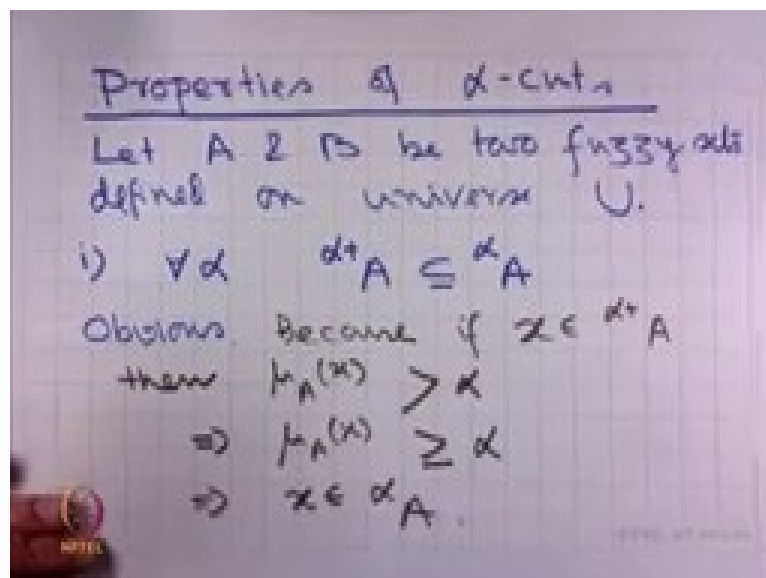 Properties of α-cuts
Let A & B be two fuzzy sets
defined on universe U.
i) ∀ α ᵅ⁺A ⊆ ᵅA
Obvious. Because if x ∈ ᵅ⁺A
then μ_A(x) > α
⇒ μ_A(x) ≥ α
⇒ x ∈ ᵅA.
NPTEL